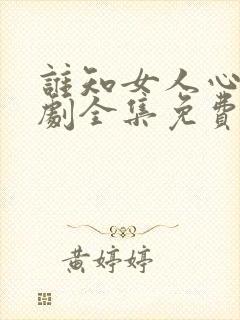 誰知女人心
劇全集免費
黄婷婷